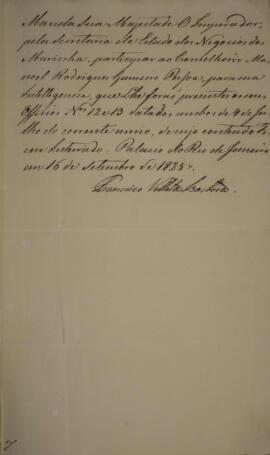 Manda Sua Magestade O Imperador,
pela Secretaria de Estado dos Negocios da
Marinha, participar ao Conselheiro Ma-
noel Rodrigues Gameiro Pessoa, para sua
Intelligencia, que lhe forão presentes os seus
Officios Nos 12 e 13 datados ambos de 4 de Ju-
lho do corrente anno, de cujo contheudo Fi-
cou Inteirado. Palacio do Rio de Janeiro
em 16 de Setembro de 1825.
Francisco Villela Barboza